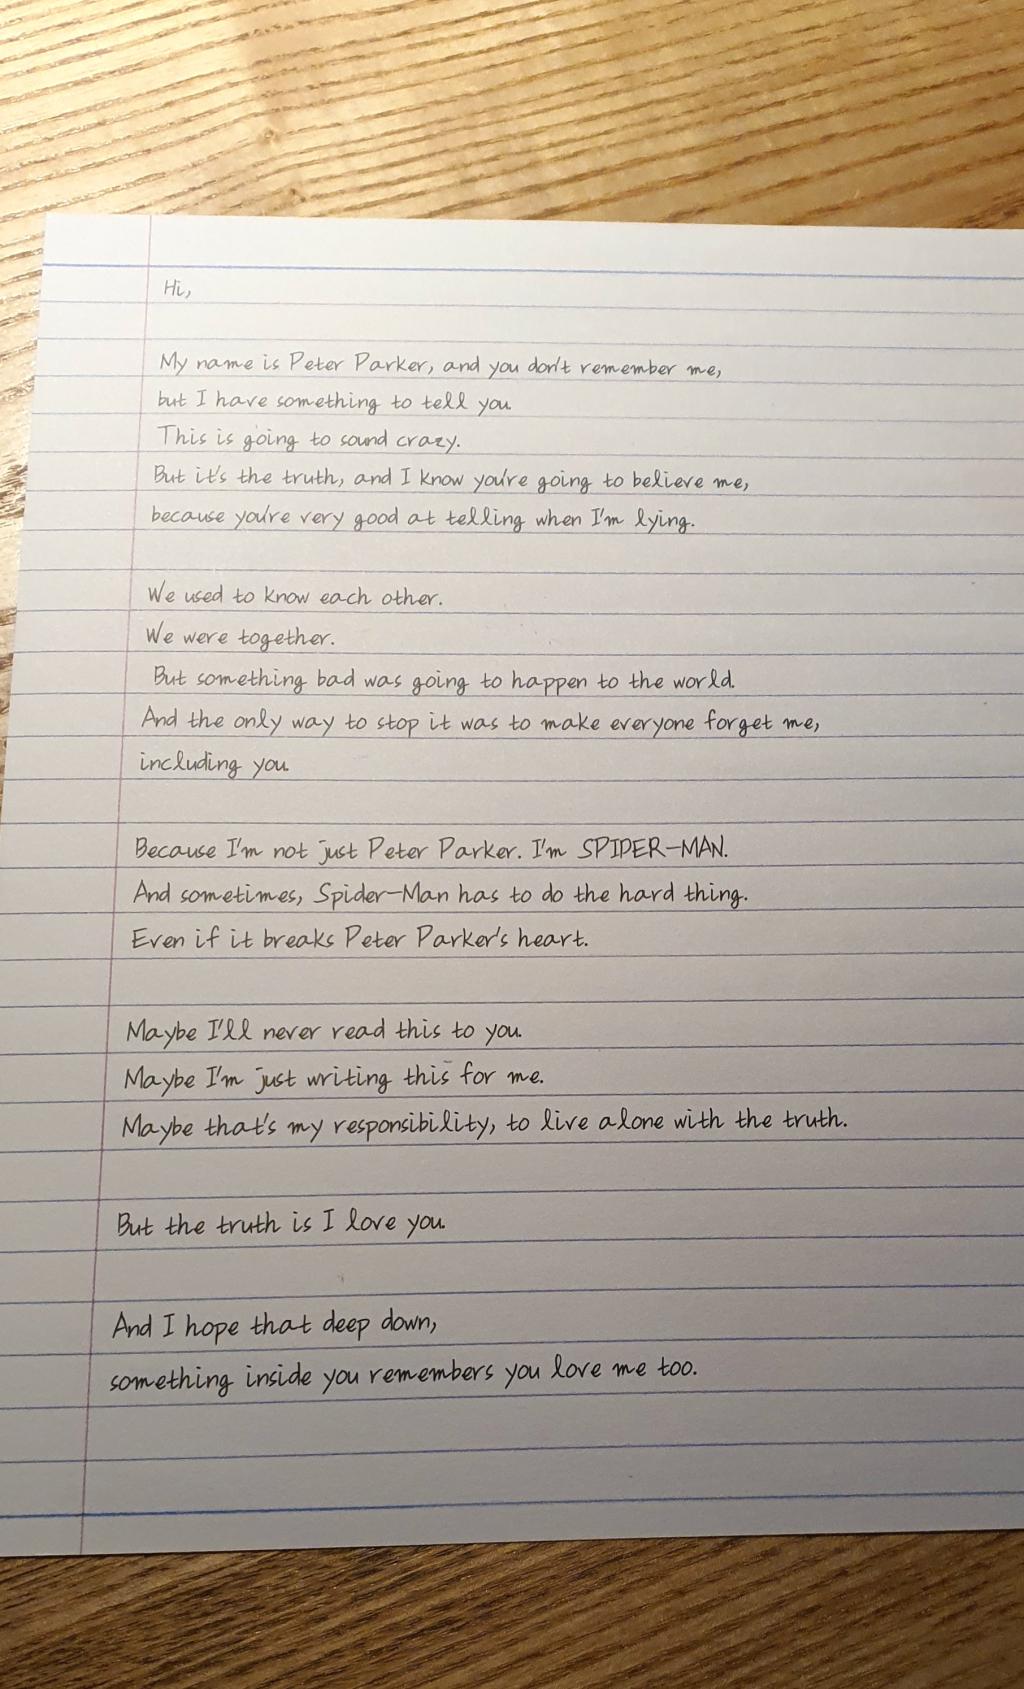 Hi,
My name is Peter Parker, and you don't remember me,
but I have something to tell you.
This is going to sound crazy.
But it's the truth, and I know you're going to believe me,
because you're very good at telling when I'm lying.
We used to know each other.
We were together.
But something bad was going to happen to the world.
And the only way to stop it was to make everyone forget me,
including you.
Because I'm not just Peter Parker. I'm SPIDER-MAN.
And sometimes, Spider-Man has to do the hard thing.
Even if it breaks Peter Parker's heart.
Maybe I'll never read this to you.
Maybe I'm just writing this for me.
Maybe that's my responsibility, to live alone with the truth.
But the truth is I love you.
And I hope that deep down,
something inside you remembers you love me too.